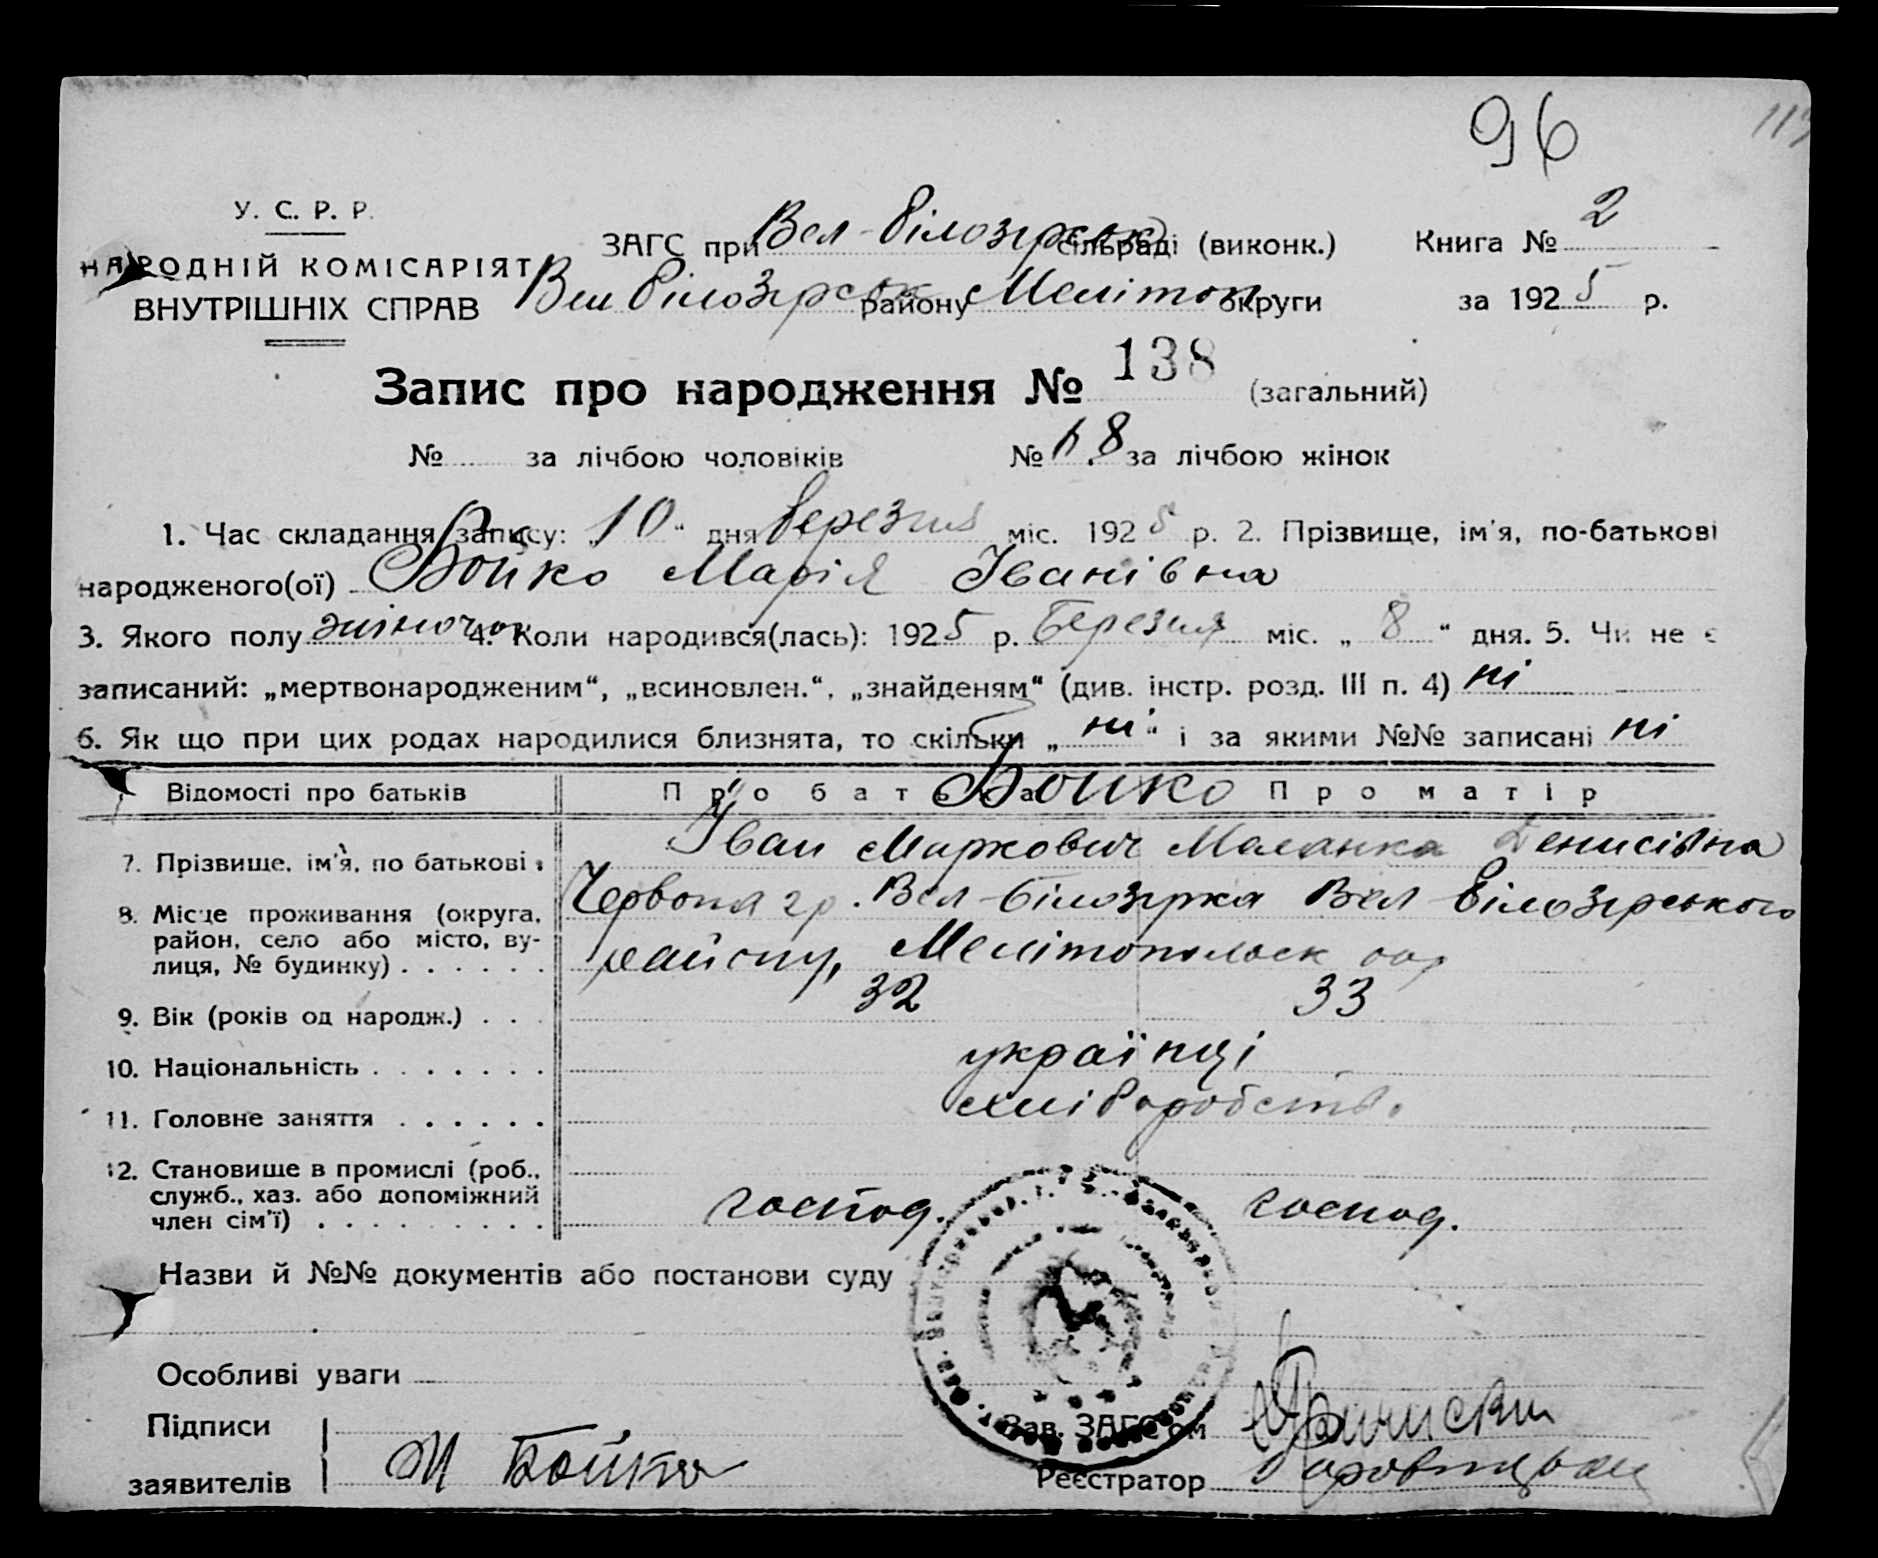 96
У. С. Р. Р.
НАРОДНІЙ КОМІСАРІЯТ
ВНУТРІШНІХ СПРАВ
ЗАГС при Вел-Білозірськ сільраді (виконк.) Книга № 2
Вел Білозірськ району Меліtоп округи за 1925 р.
Запис про народження № 138 (загальний)
№ за лічбою чоловіків № 68 за лічбою жінок
1. Час складання запису: „10“ дня березня міс. 1925 р. 2. Прізвище, ім'я, по-батькові
народженого(ої) Бойко Марія Іванівна
3. Якого полу жіночої 4. Коли народився(лась): 1925 р. Березня міс. „8“ дня. 5. Чи не є
записаний: „мертвонародженим“, „всиновлен.“, „знайденям“ (див. інстр. розд. III п. 4) ні
6. Як що при цих родах народилися близнята, то скільки „ні“ і за якими №№ записані ні
Відомості про батьків Про батька Про матір
Бойко
7. Прізвище, ім'я, по батькові Іван Маркович Маланка Денисівна
8. Місце проживання (округа, район, село або місто, вулиця, № будинку) Червоня гр. Вел-Білозірка Вел Білозірського
району, Мелітопольск окр
9. Вік (років од народж.) 32 33
10. Національність українці
11. Головне заняття хліборобств.
12. Становище в промислі (роб., служб., хаз. або допоміжний член сім'ї) господ. господ.
Назви й №№ документів або постанови суду
Особливі уваги
Підписи
заявителів
И Бойко
Зав. ЗАГС'ом
Реєстратор